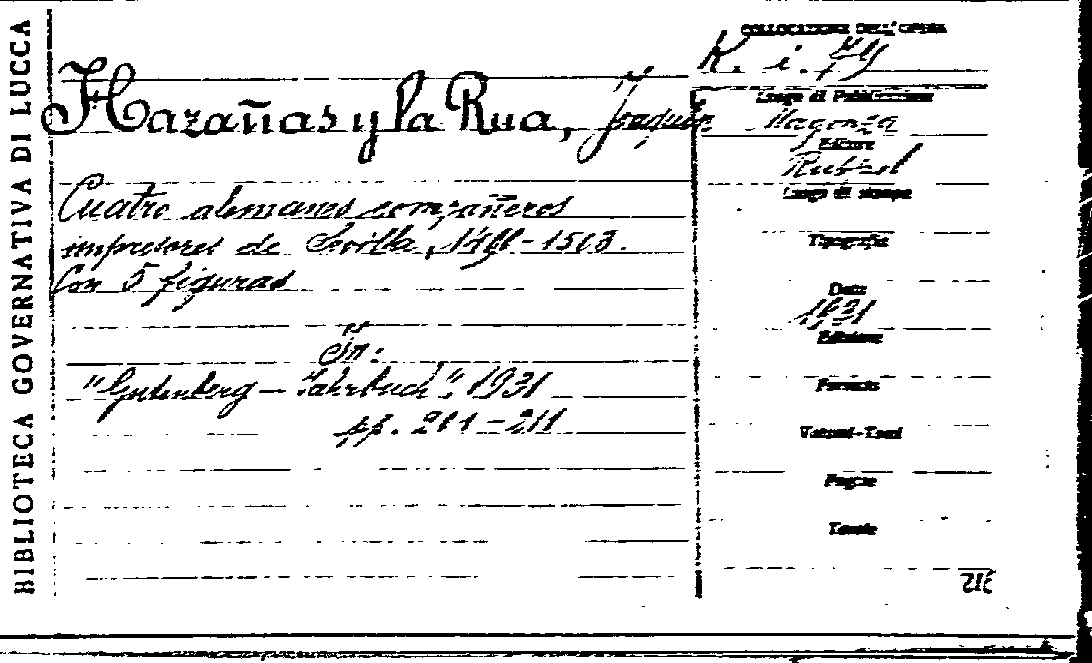 BIBLIOTECA GOVERNATIVA DI LUCCA
COLLOCAZIONE DELL'OPERA
K. i. 79
Hazañas y la Rua, Joaquín
Cuatro alemanes compañeros
impresores de Sevilla,
Con 5 figuras
In:
"Gutenberg - Jahrbuch". 1931
pp. 211
Luogo di Pubblicazione
Magonza
Editore
Luogo di stampa
Tipografia
Data
1931
Edizione
Formato
Volumi-Tomi
Pagine
Tavole